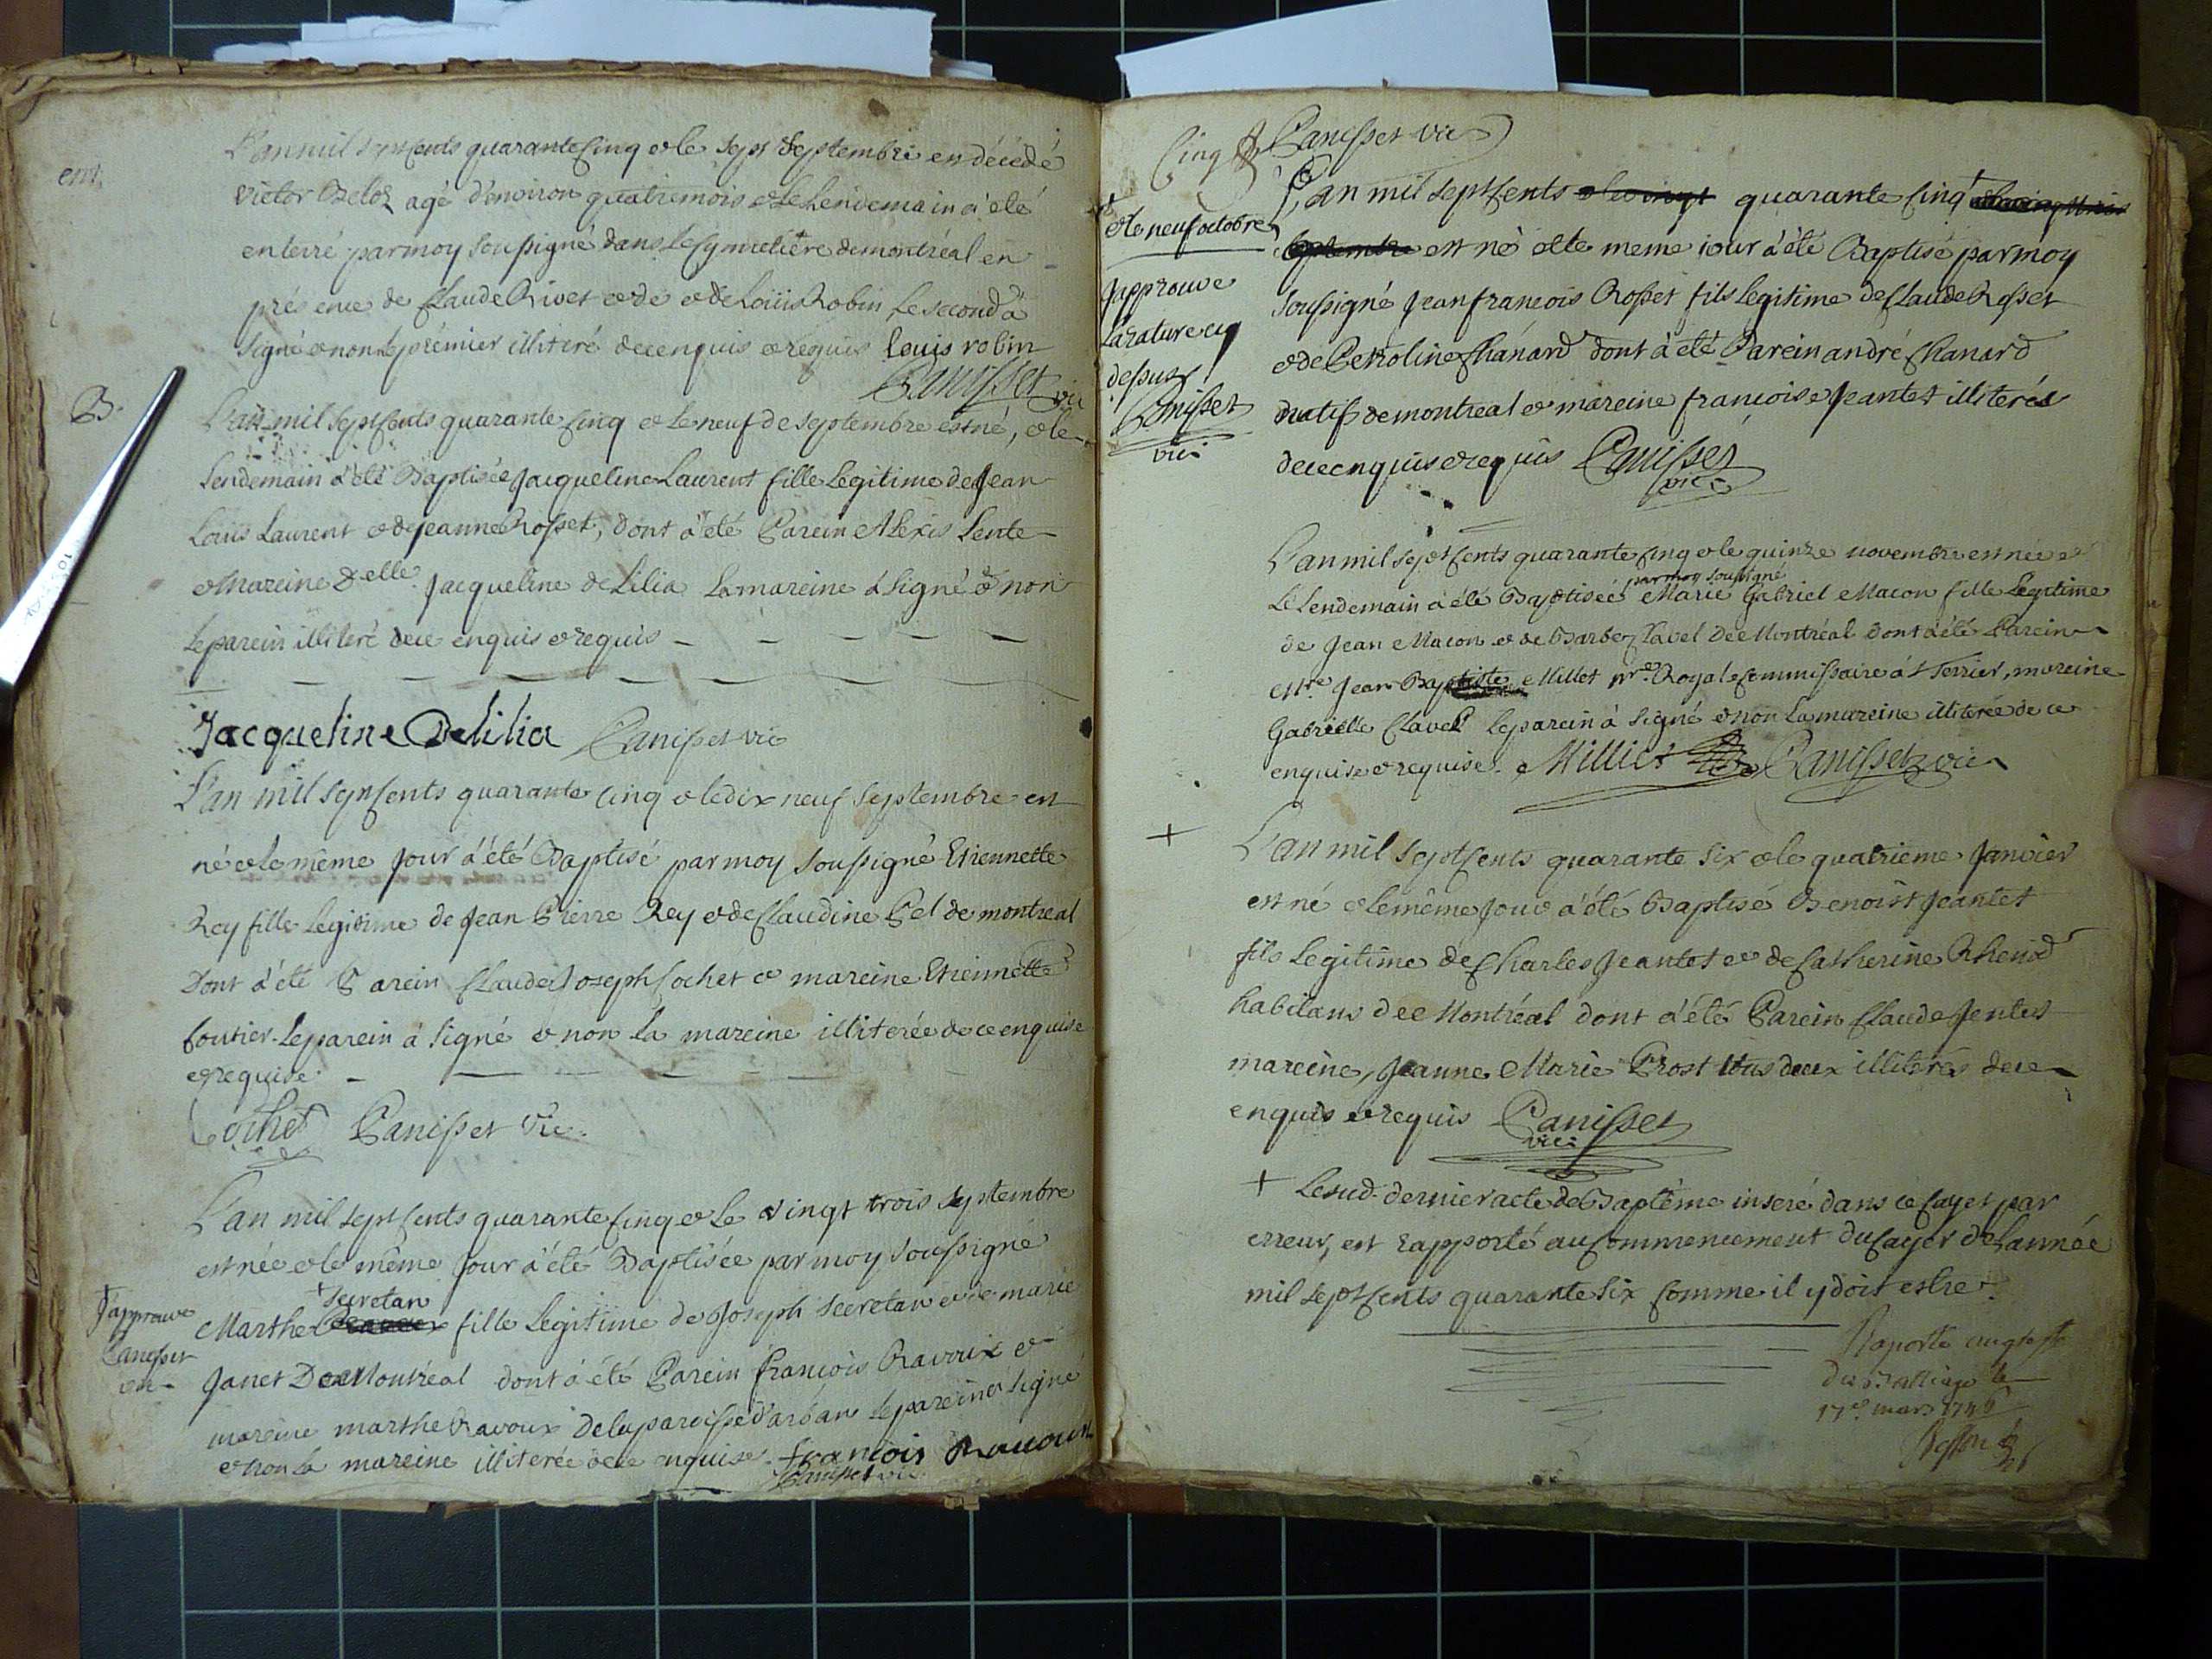 L'an mil sept cents quarante cinq & le sept septembre est décédé
victor Beloz agé d'environ quatre mois & le lendemain à été
enterré par moy soussigné dans le cymetiére de montréal en
présence de Claude Rivet & de & de Loüis Robin, le second à
signé & non le prémier illiteré de ce enquis & requis louis robin
Panisset vic
B.
L'an mil sept cents quarante cinq & le neuf de septembre est né, & le
Lendemain à été Baptisée Jacqueline Laurent fille Legitime de Jean
Louis Laurent & de jeanne Rosset, dont à été Parein Alexis Lente
& Mareine Delle Jacqueline de Lilia La mareine à signé & non
le parein illiteré de ce enquis & requis
Jacqueline Delilia Panisset vic
L'an mil sept cents quarante cinq & le dix neuf septembre est
né & le même Jour à été Baptisé par moy soussigné Etiennette
Rey fille Legitime de Jean Pierre Rey & de Claudine Pel de montreal
Dont à été Parein Claude Joseph Cochet & mareine Etiennette
Coutier. Le parein à signé & non la mareine illiterée de ce enquise
& requise.
Cochet Panisset vic.
L'an mil sept cents quarante cinq & Le vingt trois septembre
est née & le même Jour à été Baptisée par moy soussigné
+ secretan
+ J'approuve
Panisset
vic
Marthe fille Légitime de Joseph secretan & de marie
Janet De Montréal dont à été Parein François Ravoux &
mareine marthe Ravoux De la paroisse d'arban le parein à signé
& non La mareine illiterée de ce enquise. francois Rauoux
Panisset vic.
Cinq Panisset vic
L'an mil sept cents & le vingt quarante cinq +
septembre est né & le meme iour à été Baptisé par moy
+
& le neuf octobre
Japprouve
La rature cy
dessus
Panisset
vic
soussigné Jean francois Rosset fils legitime de Claude Rosset
& de Petroline Chánard dont à été Parein andré Chanard
natifs de montreal & mareine francoise Jeantet illiterés
de ce enquis & requis Panisset
vic
L'an mil sept cents quarante cinq & le quinze novembre est née &
par moy soussigné
Le Lendemain à été Baptiseé Marie Gabriel Macon fille Legitime
de Jean Macon & de Barbe Clavel De Montréal dont à été Parein
Mre Jean Baptiste Millet nre Royal Commissaire à Terrier, mareine
Gabrielle Clavel Le parein à signé & non La mareine illiterée de ce
enquise & requise. Milliet Panisset vic
+
L'an mil sept cents quarante six & le quatrieme Janvier
est né & le même Jour à été Baptisé Benoist Jeantet
fils Legitime de Charles Jeantet & de Catherine Rhenod
habitans de Montréal dont à été Parein Claude Jentet
mareine, Jeanne Marie Prost tous deux illiterés de ce
enquis & requis Panisset
vic
+ Le sud. dernier acte de Baptême inseré dans ce Cayer par
erreur, est rapporté au Commencement du Cayer de L'année
mil sept cents quarante six comme il y doit estre.
Raporté au greffe
du Balliage le
17e mars 1746